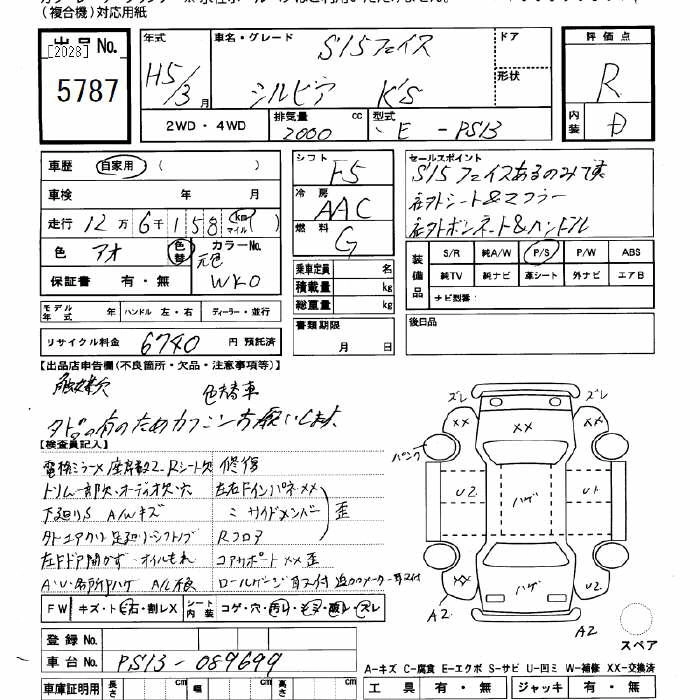 (複合機)対応用紙
出品No.
[2028]
5787
年式
H5/3月
車名・グレード
S15フェイス
シルビア K'S
ドア
形状
評価点
R
内装
D
2WD・4WD
排気量 2000 cc
型式 E - PS13
車歴 自家用 ( )
車検 年 月
走行 12万6千158 km マイル
色 アオ 色替 カラーNo.
元色 WK0
保証書 有・無
モデル年式 年 ハンドル 左・右 ディーラー・並行
リサイクル料金 6740 円 預託済
シフト F5
冷房 AAC
燃料 G
乗車定員 名
積載量 kg
総重量 kg
書類期限
月 日
セールスポイント
S15フェイスあるのみです
社外シート&マフラー
社外ボンネット&ハンドル
装備品
S/R 純A/W P/S P/W ABS
純TV 純ナビ 革シート 外ナビ エアB
ナビ型番:
後日品
【出品店申告欄(不良箇所・欠品・注意事項等)】
触媒欠 色替車
【検査員記入】
修復
トリム一部欠・オーディオ欠・穴
下廻りS A/Wキズ
ミ サイドメンバー 歪
Rフロア
左ドア開かず・オイルもれ
コアサポートXX歪
FW キズ・ト石・割レX シート内装 コゲ・穴・汚レ・スレ
登録No.
車台No. PS13-089699
車庫証明用 長さ cm 幅 cm 高さ cm
ズレ ズレ
XX XX XX
パンク
U2 ハゲ U1
XX ハゲ U2
A2 A2
スペア
A-キズ C-腐食 E-エクボ S-サビ U-凹ミ W-補修 XX-交換済
工具 有・無 ジャッキ 有・無